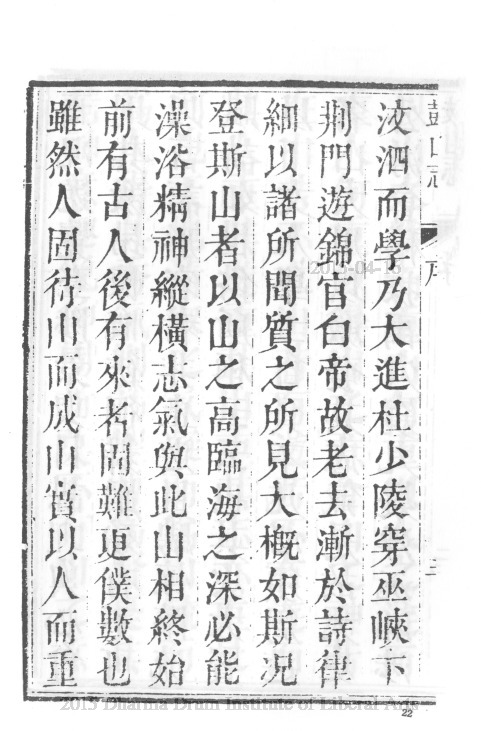 鼓山志 序 三
汶泗而學乃大進杜少陵穿巫峽下
荆門遊錦官白帝故老去漸於詩律
細以諸所聞質之所見大概如斯况
登斯山者以山之高臨海之深必能
澡浴精神縱橫志氣與此山相終始
前有古人後有來者固難更僕數也
雖然人固待山而成山實以人而重
2015-04-16
2015 Dharma Drum Institute of Liberal Arts
22